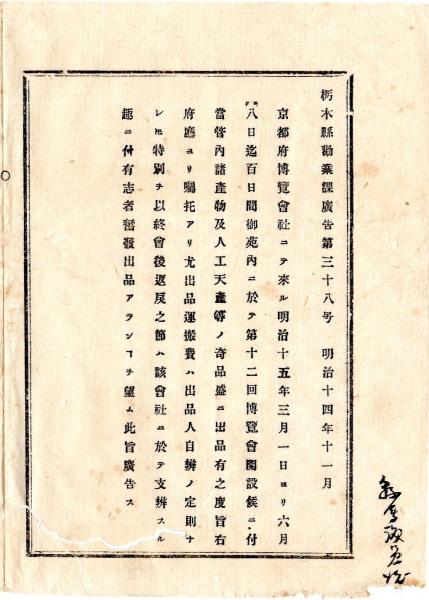 栃木縣勸業課廣告第三十八号　明治十四年十一月
京都府博覽會社ニテ來ル明治十五年三月一日ヨリ六月
八日迄百日間御苑內ニ於テ第十二回博覽會開設候ニ付
當管內諸產物及人工天產等ノ奇品盛ニ出品有之度旨右
府廳ヨリ囑托アリ尤出品運搬費ハ出品人自辨ノ定則ナ
レ𪜈特別ヲ以終會後返戾之節ハ該會社ニ於テ支辨スル
趣ニ付有志者奮發出品アランヿヲ望ム此旨廣告ス